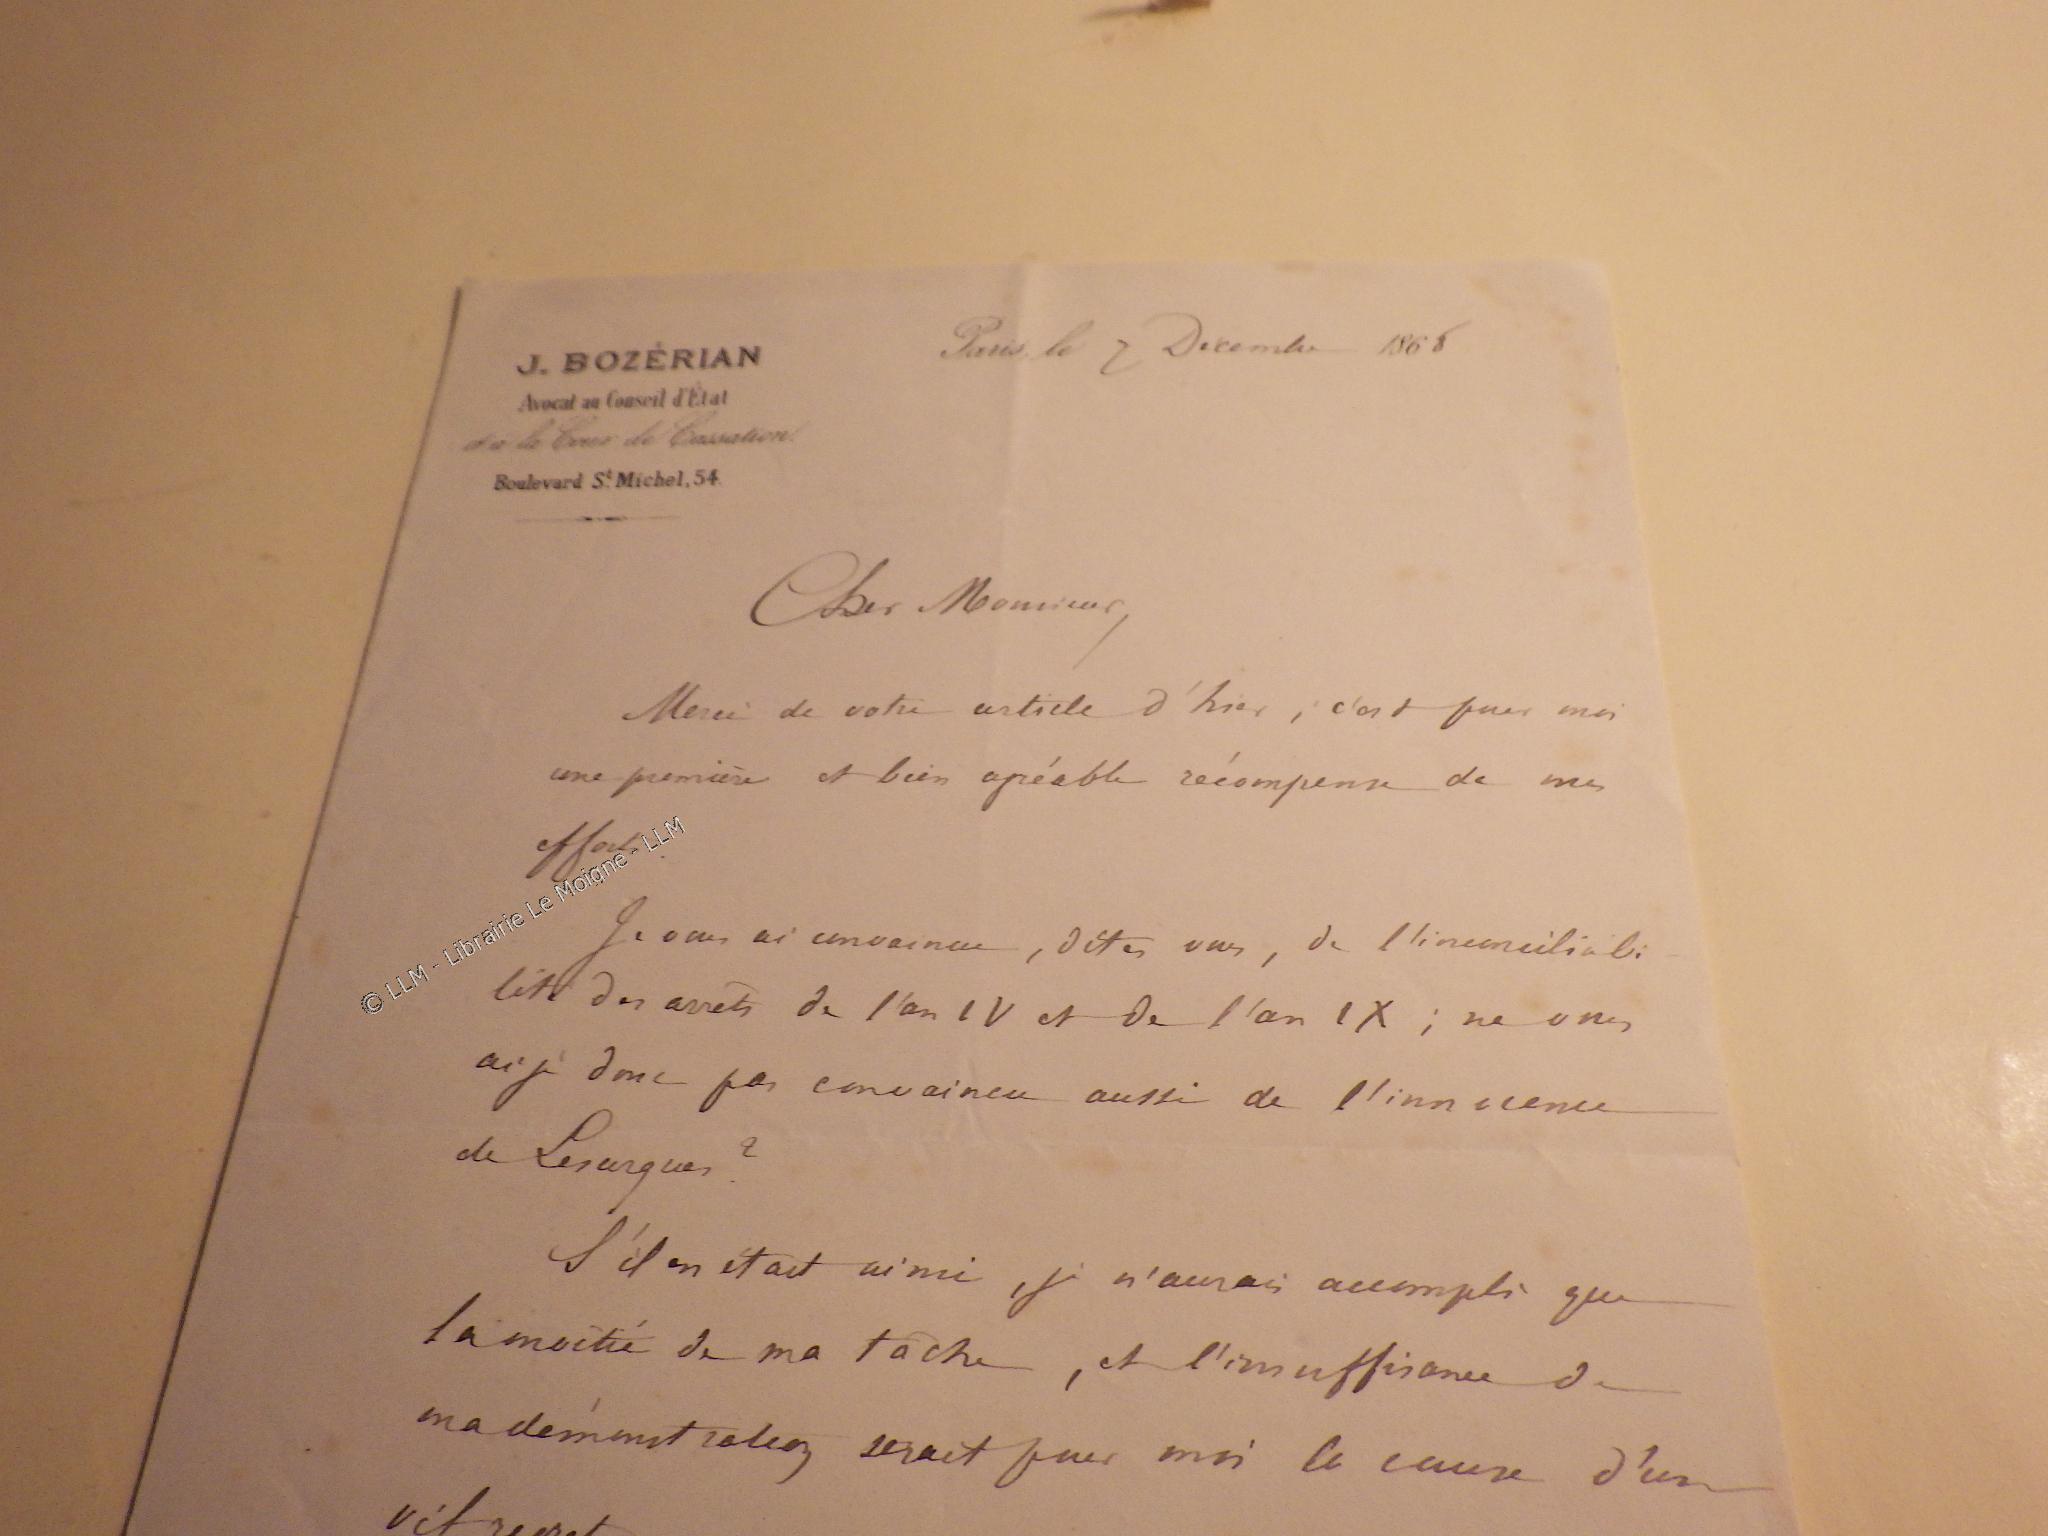 J. BOZÉRIAN
Avocat au Conseil d'État
et à la Cour de Cassation.
Boulevard St. Michel, 54.
Paris, le 7 Decembre 1868
Cher Monsieur,
Merci de votre article d'hier ; c'est pour moi
une première et bien agréable récompense de mes
efforts.
Je vous ai convaincu, dites vous, de l'inconciliabi-
lité des arrêts de l'an IV et de l'an IX ; ne vous
ai je donc pas convaincu aussi de l'innocence
de Lesurques ?
S'il en était ainsi, je n'aurais accompli que
la moitié de ma tâche, et l'insuffisance de
ma démonstration serait pour moi la cause d'un
vif regret
© LLM - Librairie Le Moigne - LLM